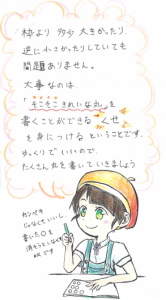 枠より 多少 大きかったり、
逆に小さかったりしていても
問題ありません。
大事なのは
「そこそこきれいな丸」を
書くことができる くせ
を身につける ということです。
ゆっくりで いいので、
たくさん丸を書いていきましょう
カンペキ
じゃなくていいし、
書いた○を
消そうとしなくても
OKです